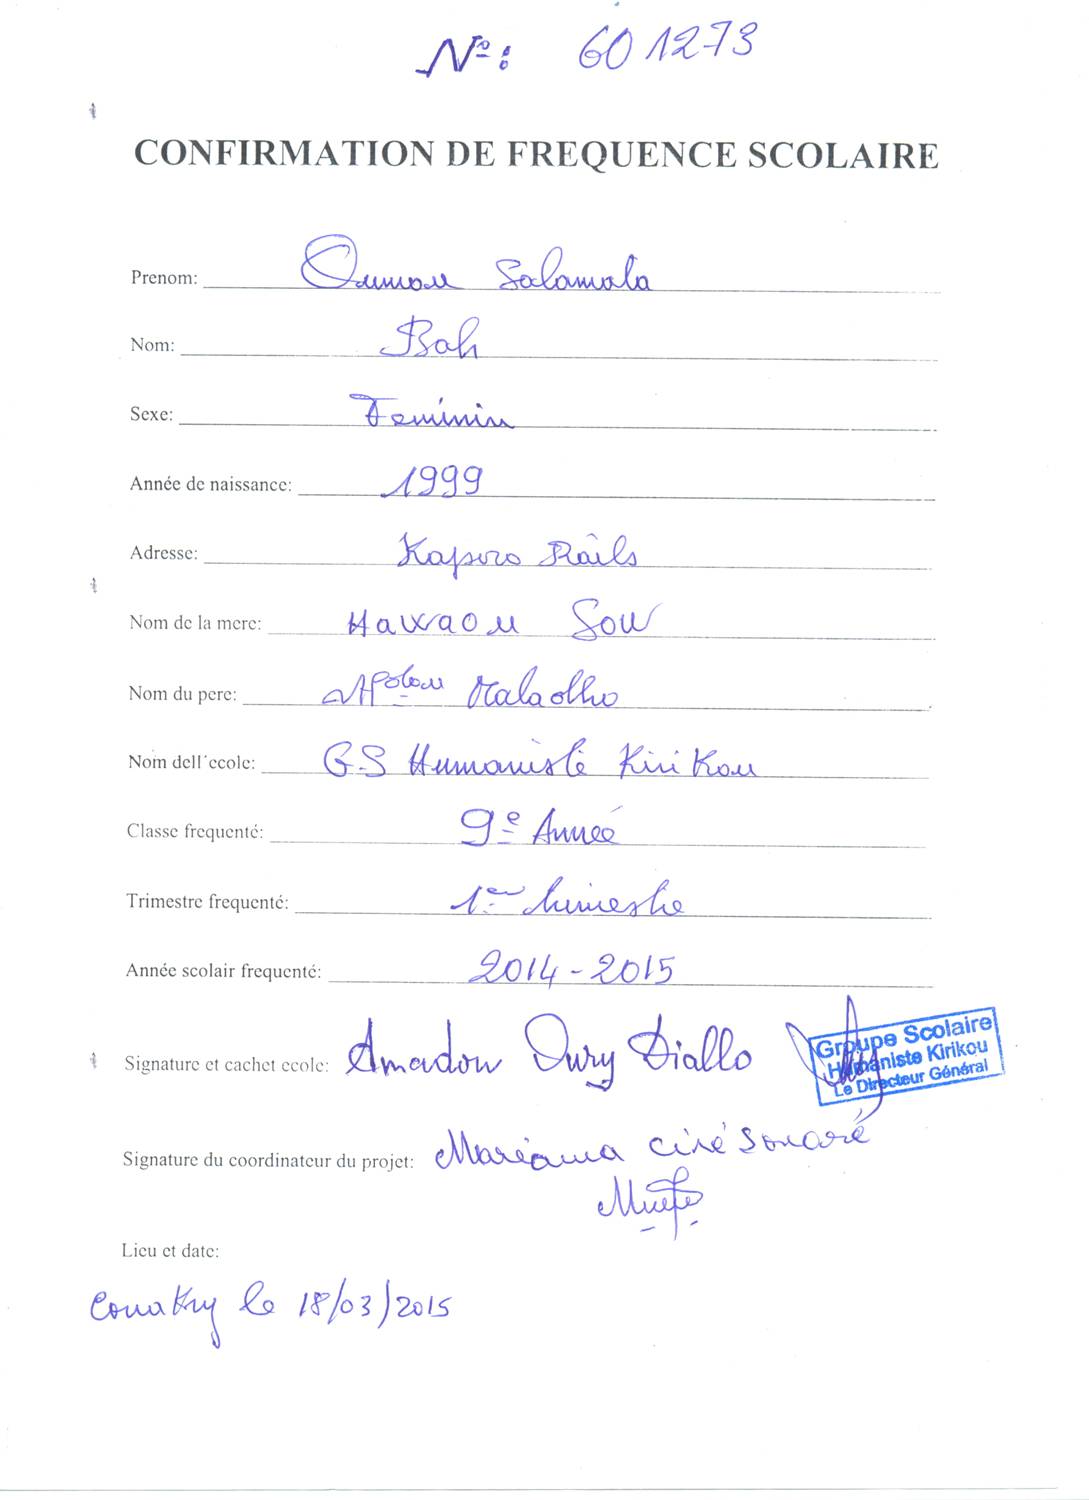 N°: 601273
CONFIRMATION DE FREQUENCE SCOLAIRE
Prenom: Oumou Salamata
Nom: Bah
Sexe: Feminin
Année de naissance: 1999
Adresse: Kaporo Rails
Nom de la mere: Hawaou Sow
Nom du pere:
Nom dell´ecole: GS Humaniste Kirikou
Classe frequenté: 9e Année
Trimestre frequenté: 1er trimestre
Année scolair frequenté: 2014-2015
Signature et cachet ecole: Amadou Oury Diallo
Groupe Scolaire
Humaniste Kirikou
Le Directeur Général
Signature du coordinateur du projet: Mariama ciré Soumaré
Lieu et date:
Conakry le 18/03/2015